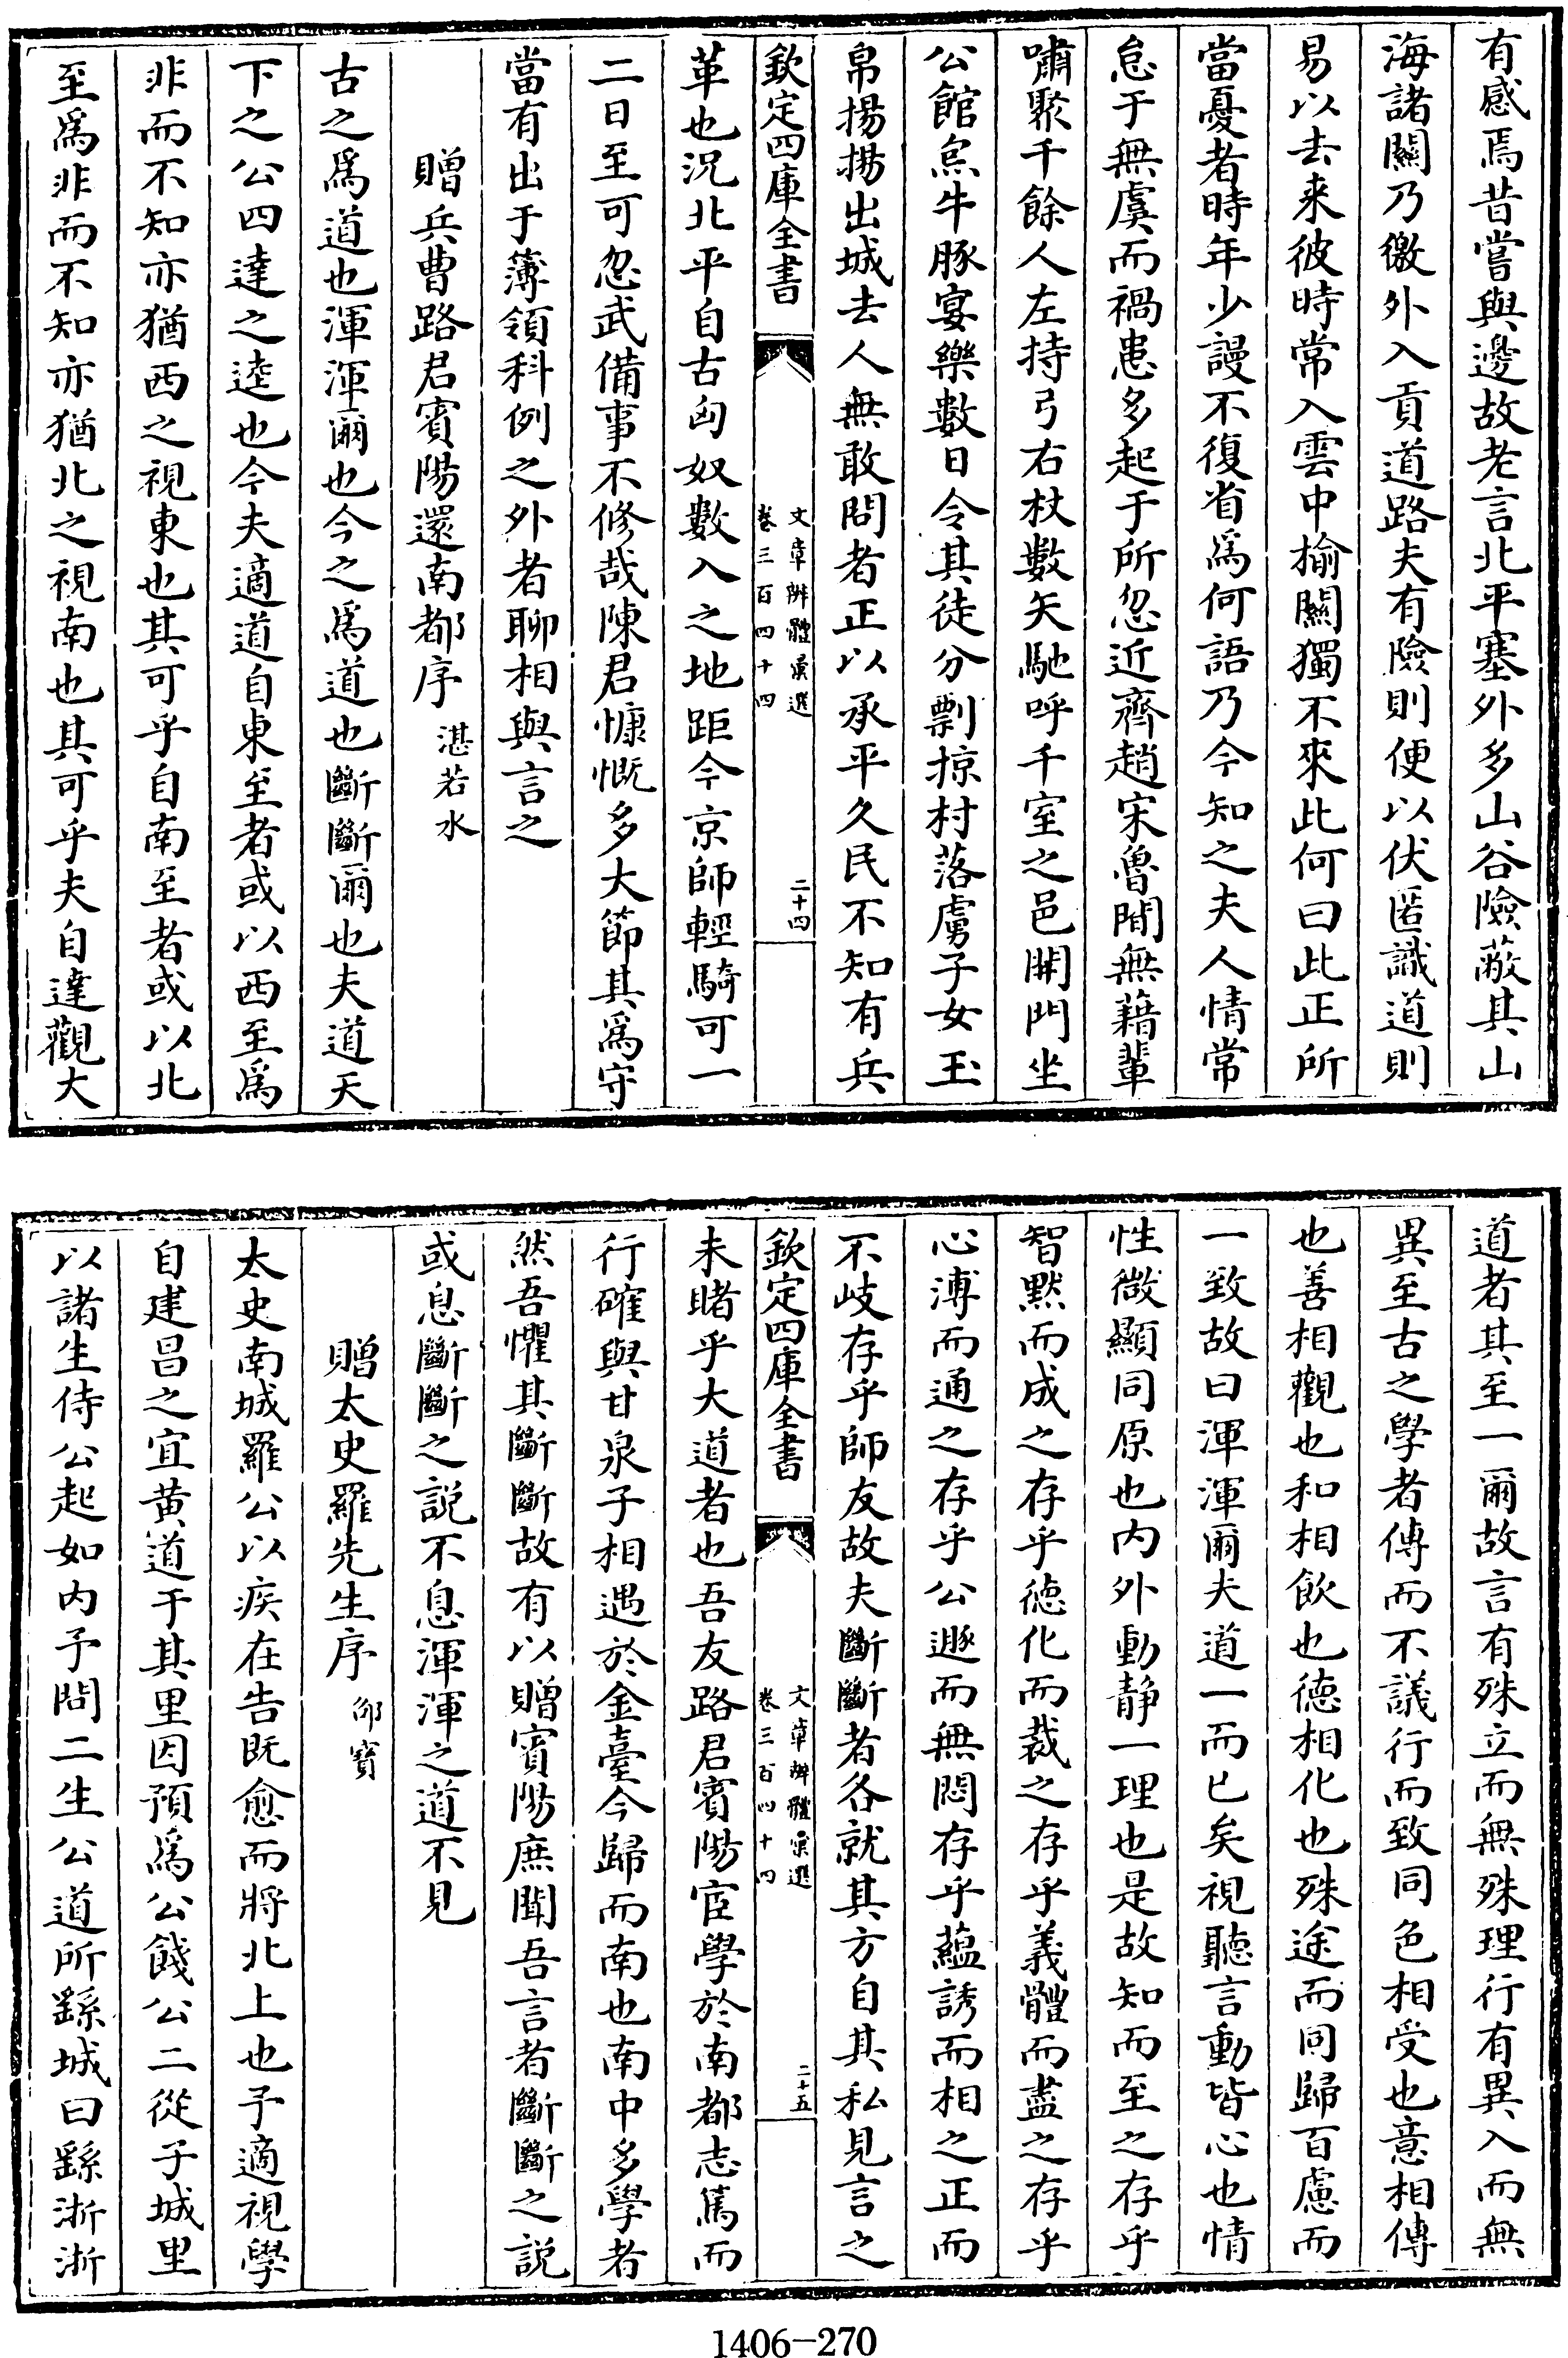 有感焉昔嘗與邊故老言北平塞外多山谷險蔽其山
海諸關乃徼外入貢道路夫有險則便以伏匿識道則
易以去來彼時常入雲中揄關獨不來此何曰此正所
當憂者時年少謾不復省為何語乃今知之夫人情常
怠于無虞而禍患多起于所忽近齊趙宋魯間無藉輩
嘯聚千餘人左持弓右杖數矢馳呼千室之邑開門坐
公館烹牛豚宴樂數日令其徒分剽掠村落虜子女玉
帛揚揚出城去人無敢問者正以承平久民不知有兵
欽定四庫全書
文章辨體彙選
卷三百四十四
二十四
革也況北平自古匈奴數入之地距今京師輕騎可一
二日至可忽武備事不修哉陳君慷慨多大節其為守
當有出于簿領科例之外者聊相與言之
贈兵曹路君賓陽還南都序 湛若水
古之為道也渾渾爾也今之為道也斷斷爾也夫道天
下之公四達之逵也今夫適道自東至者或以西至為
非而不知亦猶西之視東也其可乎自南至者或以北
至為非而不知亦猶北之視南也其可乎夫自達觀大
道者其至一爾故言有殊立而無殊理行有異入而無
異至古之學者傳而不議行而致同色相受也意相傳
也善相觀也和相飲也德相化也殊途而同歸百慮而
一致故曰渾渾爾夫道一而已矣視聽言動皆心也情
性微顯同原也內外動靜一理也是故知而至之存乎
智默而成之存乎德化而裁之存乎義體而盡之存乎
心溥而通之存乎公遯而無悶存乎蘊誘而相之正而
不岐存乎師友故夫斷斷者各就其方自其私見言之
欽定四庫全書
文章辨體彙選
卷三百四十四
二十五
未睹乎大道者也吾友路君賓陽宦學於南都志篤而
行確與甘泉子相遇於金臺今歸而南也南中多學者
然吾懼其斷斷故有以贈賓陽庶聞吾言者斷斷之說
或息斷斷之說不息渾渾之道不見
贈太史羅先生序 邵寶
太史南城羅公以疾在告既愈而將北上也予適視學
自建昌之宜黃道于其里因預為公餞公二從子城里
以諸生侍公起如內予問二生公道所繇城曰繇浙浙
1406-270